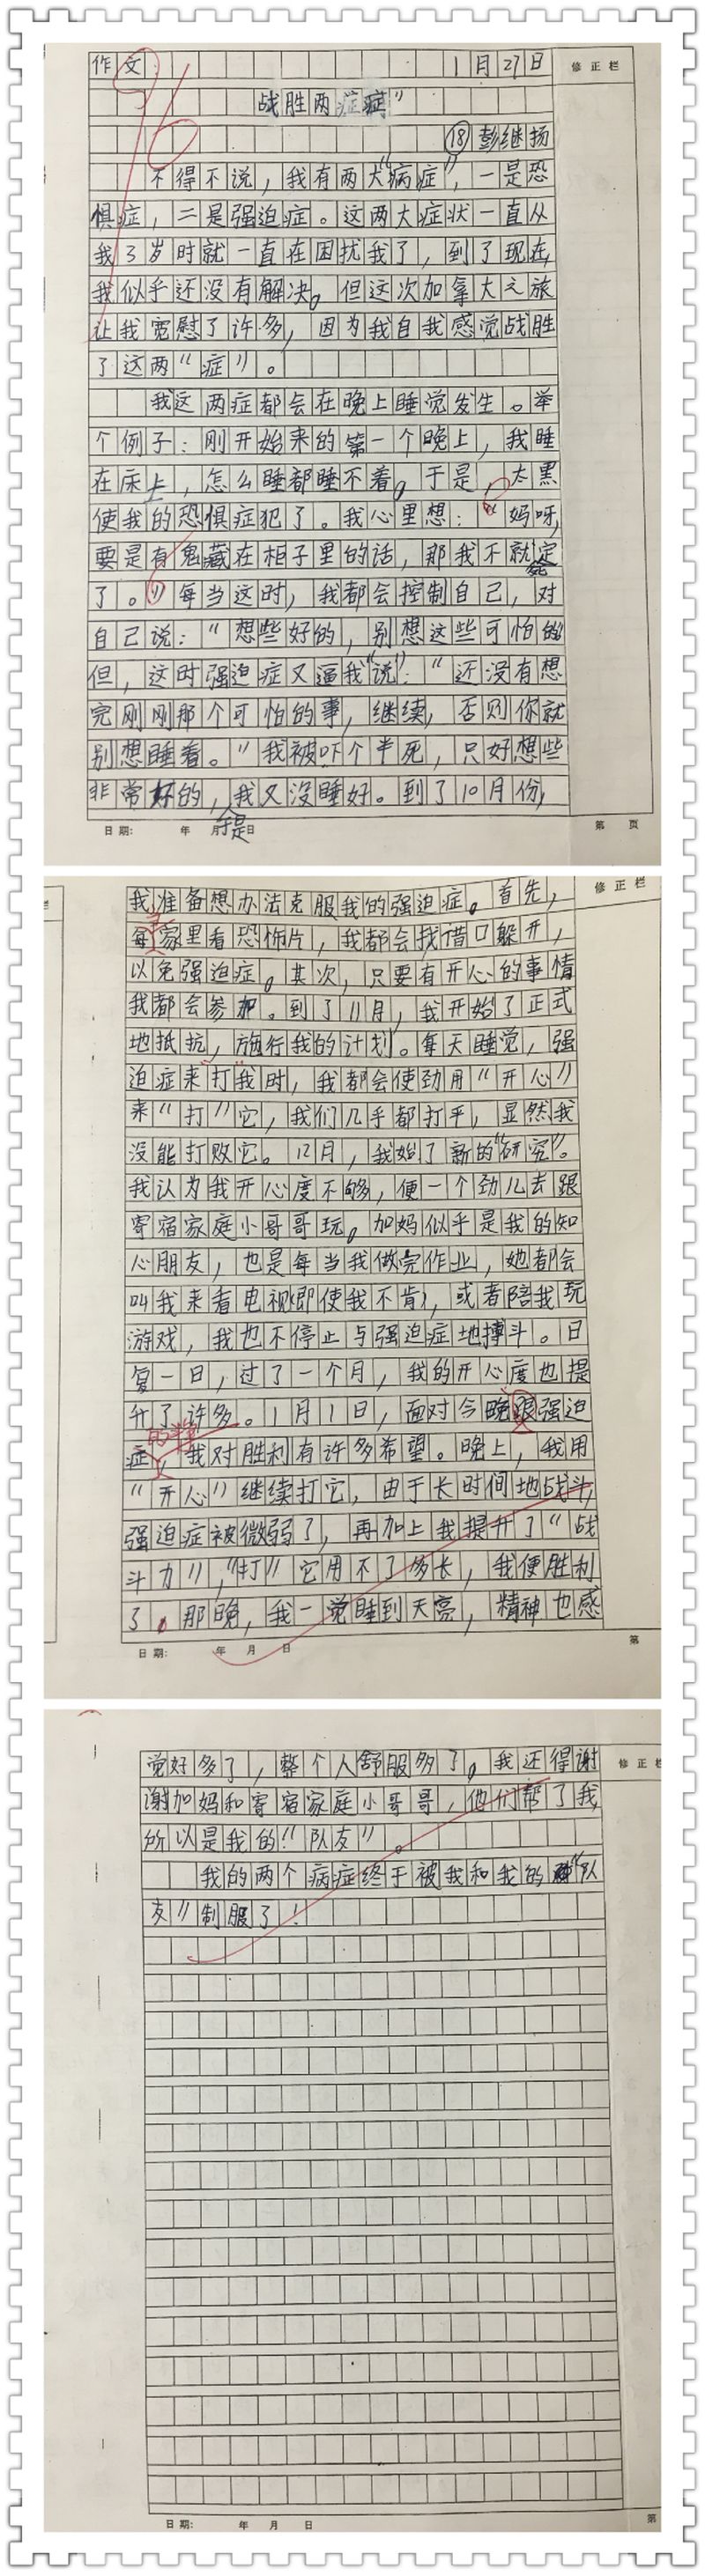 作文 1月27日 修正栏
96
战胜两“症”
⑱彭继扬
不得不说，我有两大“病症”，一是恐
惧症，二是强迫症。这两大症状一直从
我3岁时就一直在困扰我了，到了现在，
我似乎还没有解决。但这次加拿大之旅
让我宽慰了许多，因为我自我感觉战胜
了这两“症”。
我这两症都会在晚上睡觉发生。举
个例子：刚开始来的第一个晚上，我睡
在床上，怎么睡都睡不着。于是，太黑
使我的恐惧症犯了。我心里想：“妈呀，
要是有鬼藏在柜子里的话，那我不就死定
了。”每当这时，我都会控制自己，对
自己说：“想些好的，别想这些可怕的
但，这时强迫症又逼我“说”：“还没有想
完刚刚那个可怕的事，继续，否则你就
别想睡着。”我被吓个半死，只好想些
非常好的，于是我又没睡好。到了10月份，
日期： 年 月 日 第 页
修正栏
我准备想办法克服我的强迫症。首先，
每家里看恐怖片，我都会找借口躲开，
以免强迫症。其次，只要有开心的事情
我都会参加。到了11月，我开始了正式
地抵抗，施行我的计划。每天睡觉，强
迫症来“打”我时，我都会使劲用“开心”
来“打”它，我们几乎都打平，显然我
没能打败它。12月，我始了新的“研究”。
我认为我开心度不够，便一个劲儿去跟
寄宿家庭小哥哥玩。加妈似乎是我的知
心朋友，也是每当我做完作业，她都会
叫我来看电视（即使我不肯），或者陪我玩
游戏，我也不停止与强迫症地搏斗。日
复一日，过了一个月，我的开心度也提
升了许多。1月1日，面对今晚跟强迫
症的战斗，我对胜利有许多希望。晚上，我用
“开心”继续打它，由于长时间地战斗，
强迫症被微弱了，再加上我提升了“战
斗力”，“打”它用不了多长，我便胜利
了。那晚，我一觉睡到天亮，精神也感
日期： 年 月 日 第
觉好多了，整个人舒服多了。我还得谢 修正栏
谢加妈和寄宿家庭小哥哥，他们帮了我，
所以是我的“队友”。
我的两个病症终于被我和我的“队
友”制服了！
日期： 年 月 日 第